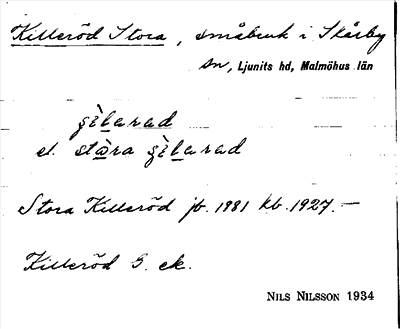 Killeröd Stora, småbruk i Skårby
sn, Ljunits hd, Malmöhus län
el. stora
Stora Killeröd jb. 1981 kb. 1927. —
Killeröd G. ek.
NILS NILSSON 1934